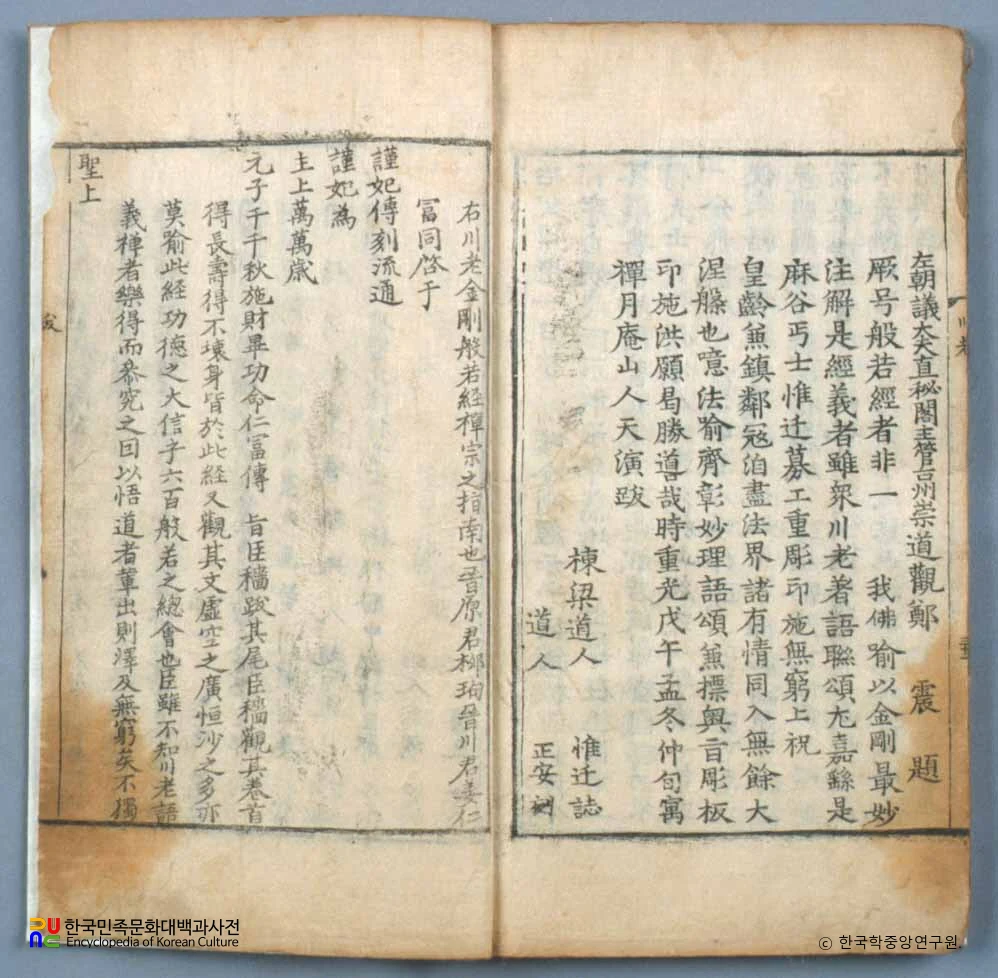 左朝議大夫直秘閣主管台州崇道觀鄭 震 題
厥号般若經者非一 我佛喻以金剛最妙
注解是經義者雖衆川老著語聯頌尤嘉繇是
麻谷丐士惟迁募工重彫印施無窮上祝
皇齡兼鎮鄰冦洎盡法界諸有情同入無餘大
涅槃也噫法喻齊彰妙理語頌兼摽奥旨彫板
印施洪願曷勝噵哉時重光戊午孟冬仲旬寓
禪月庵山人天演跋
棟梁道人 惟迁誌
道人 正安刻
右川老金剛般若経禪宗之指南也晉原君栁珣晉川君姜仁
冨同啓于
謹妃傳刻流通
謹妃為
主上萬萬歲
元子千千秋施財畢功命仁冨傳 旨臣穡跋其尾臣穡觀其卷首
得長壽得不壞身皆於此経又觀其文虛空之廣恒沙之多亦
莫喻此経功德之大信乎六百般若之緫會也臣雖不知川老語
義禪者樂得而叅究之因以悟道者軰出則澤及無窮矣不獨
聖上
跋
한국민족문화대백과사전
Encyclopedia of Korean Culture
© 한국학중앙연구원